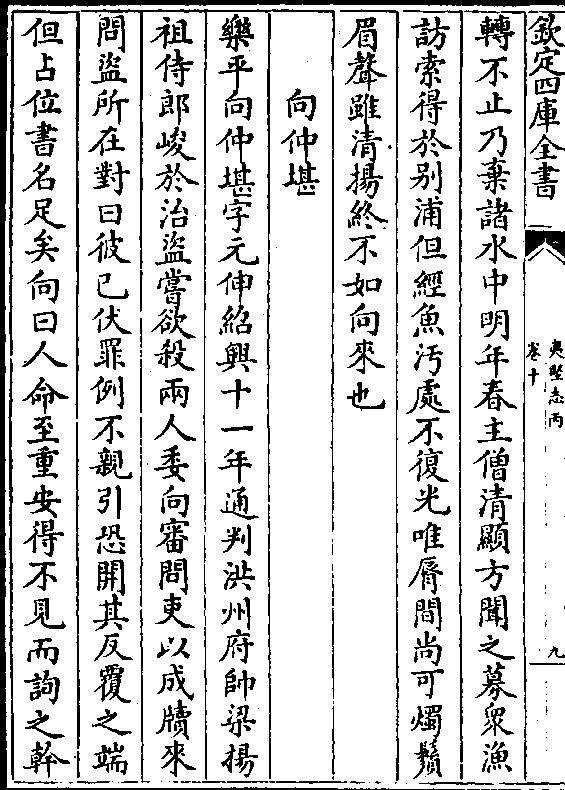 欽定四庫全書
夷堅志丙
卷十
九
轉不止乃棄諸水中明年春主僧清顯方聞之募衆漁
訪索得於别浦但經魚汚處不復光唯脣間尚可燭鬚
眉聲雖清揚終不如向來也
向仲堪
樂平向仲堪字元伸紹興十一年通判洪州府帥梁揚
祖侍郎峻於治盜嘗欲殺兩人委向審問吏以成牘來
問盜所在對曰彼已伏罪例不親引恐開其反覆之端
但占位書名足矣向曰人命至重安得不見而詢之幹